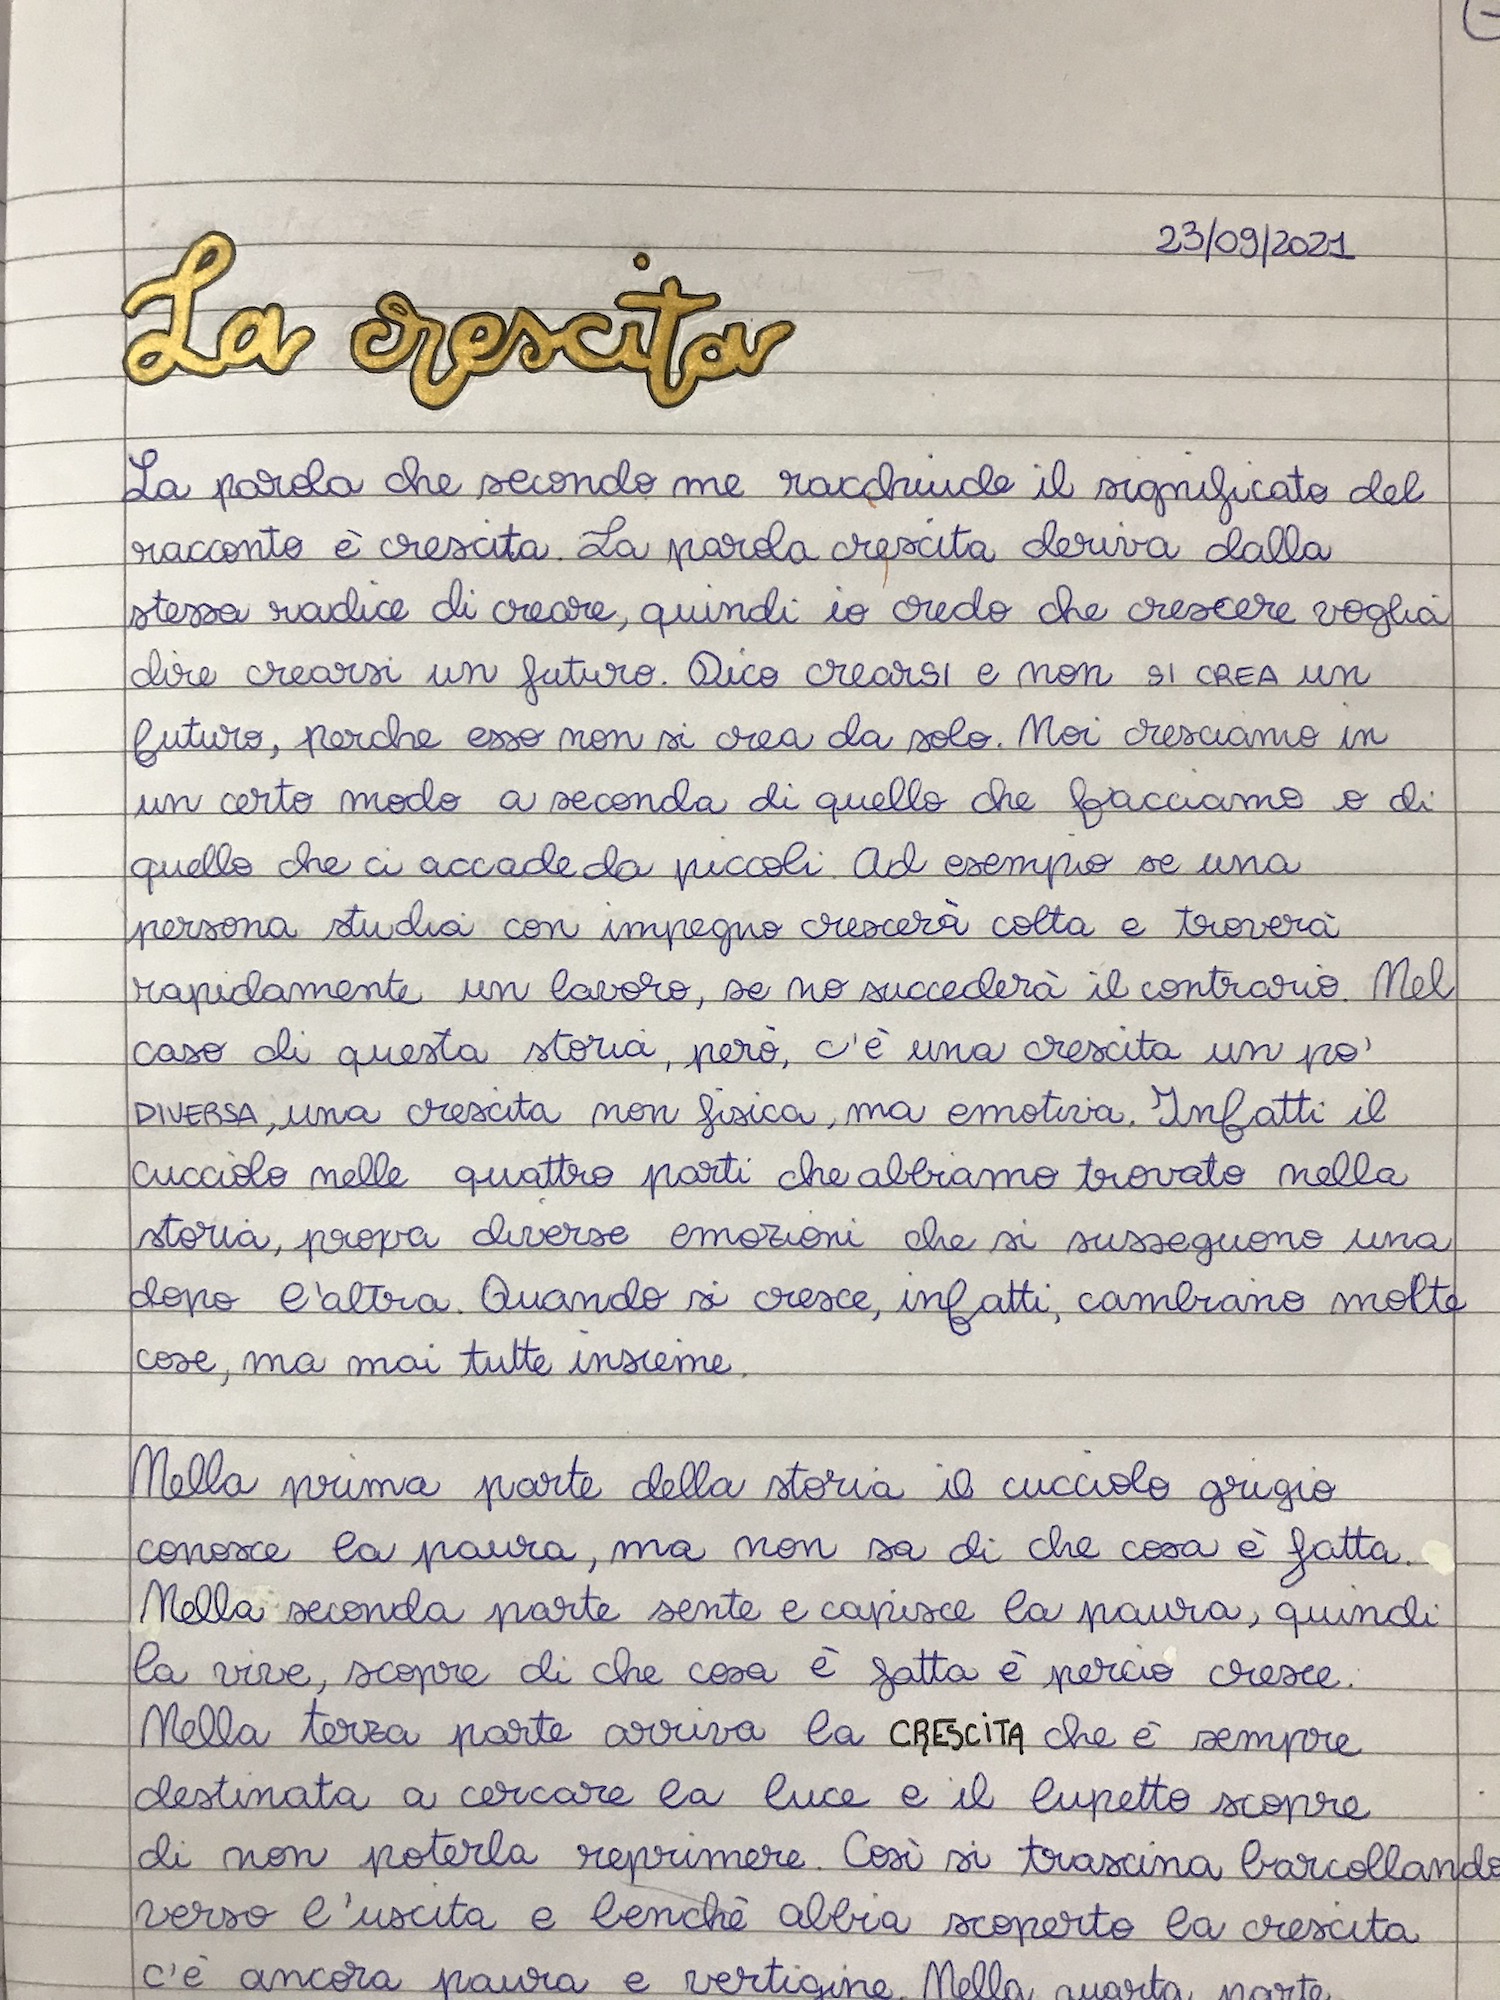 23/09/2021
La crescita
La parola che secondo me racchiude il significato del
racconto è crescita. La parola crescita deriva dalla
stessa radice di creare, quindi io credo che crescere voglia
dire crearsi un futuro. Dico crearSI e non SI CREA un
futuro, perche esso non si crea da solo. Noi cresciamo in
un certo modo a seconda di quello che facciamo o di
quello che ci accade da piccoli. Ad esempio se una
persona studia con impegno crescerà colta e troverà
rapidamente un lavoro, se no succederà il contrario. Nel
caso di questa storia, però, c'è una crescita un po'
DIVERSA, una crescita non fisica, ma emotiva. Infatti il
cucciolo nelle quattro parti che abbiamo trovato nella
storia, prova diverse emozioni che si susseguono una
dopo l'altra. Quando si cresce, infatti, cambiano molte
cose, ma mai tutte insieme.
Nella prima parte della storia il cucciolo grigio
conosce la paura, ma non sa di che cosa è fatta.
Nella seconda parte sente e capisce la paura, quindi
la vive, scopre di che cosa è fatta è perciò cresce.
Nella terza parte arriva la CRESCITA che è sempre
destinata a cercare la luce e il lupetto scopre
di non poterla reprimere. Così si trascina barcollando
verso l'uscita e benchè abbia scoperto la crescita
c'è ancora paura e vertigine. Nella quarta parte